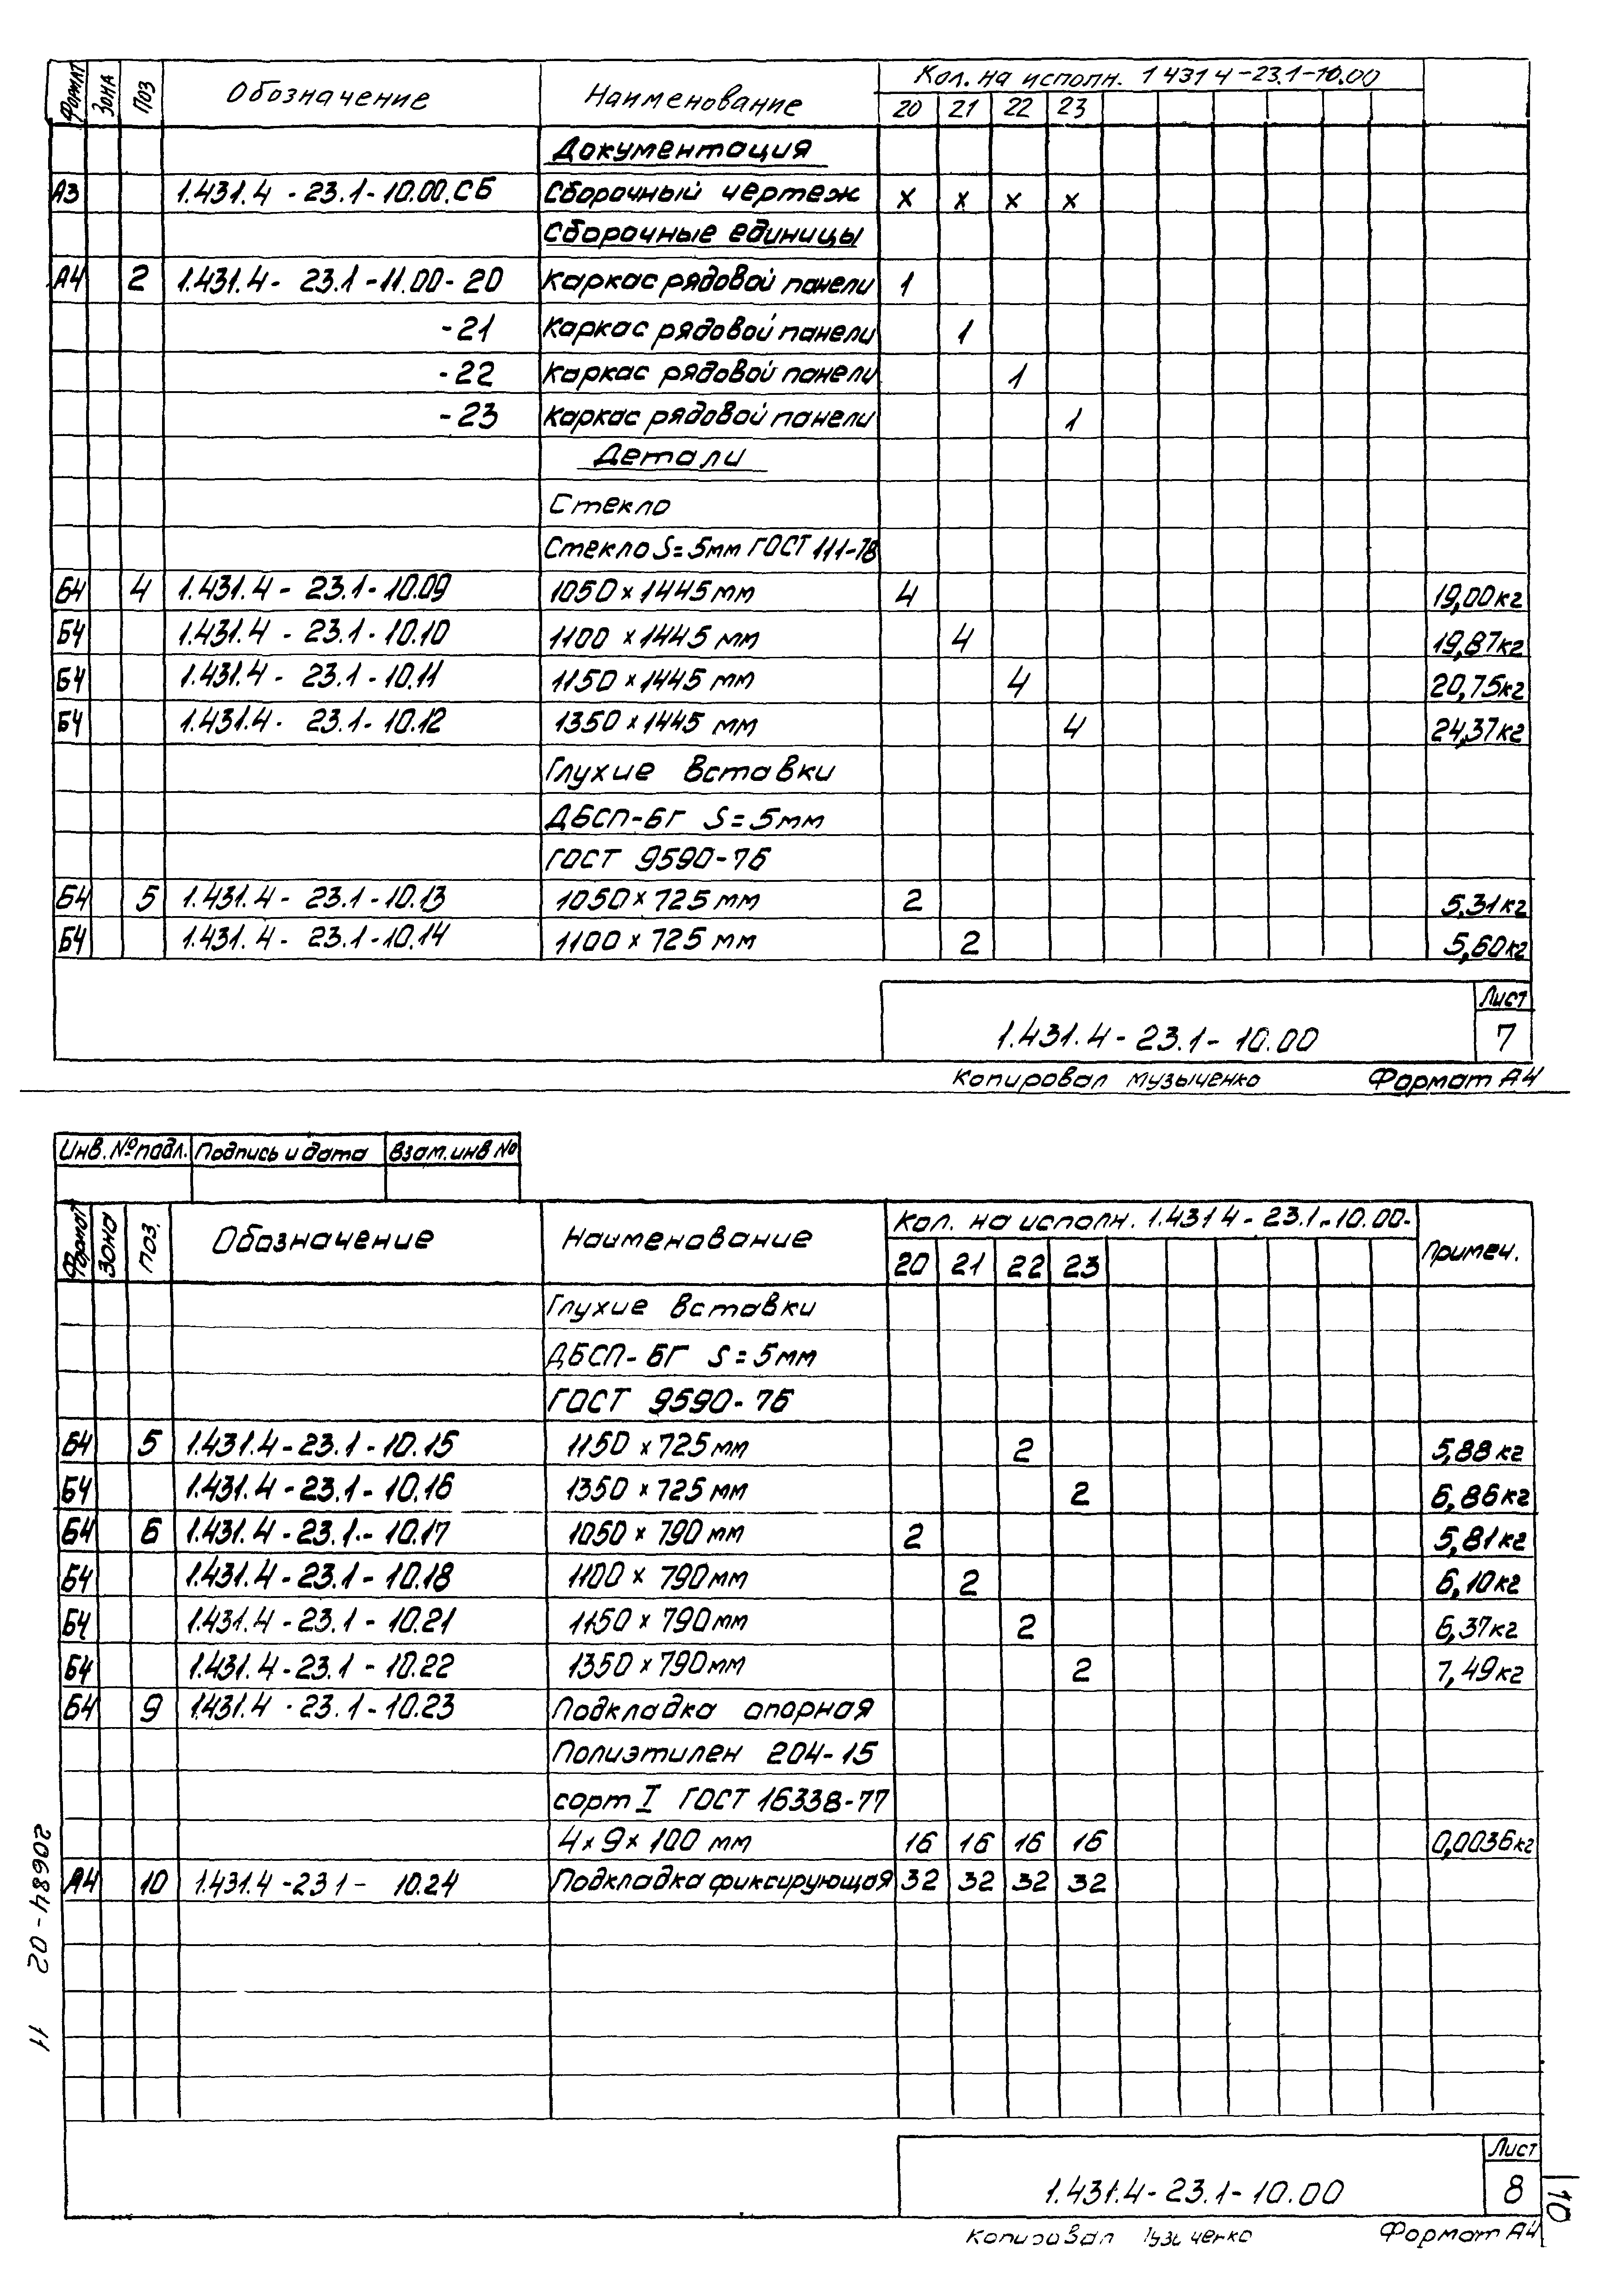 Формат Зона Поз Обозначение Наименование Кол. на исполн. 1 431 4-23.1-10.00
20 21 22 23
Документация
А3 1.431.4 - 23.1-10.00.СБ Сборочный чертеж х х х х
Сборочные единицы
А4 2 1.431.4- 23.1-11.00-20 Каркас рядовой панели 1
-21 Каркас рядовой панели 1
-22 Каркас рядовой панели 1
-23 Каркас рядовой панели 1
Детали
Стекло
Стекло S=5мм ГОСТ 111-78
Б4 4 1.431.4 - 23.1-10.09 1050 х 1445 мм 4 19,00кг
Б4 1.431.4 - 23.1-10.10 1100 х 1445 мм 4 19,87кг
Б4 1.431.4 - 23.1-10.11 1150 х 1445 мм 4 20,75кг
Б4 1.431.4 - 23.1-10.12 1350 х 1445 мм 4 24,37кг
Глухие вставки
ДБСП-БГ S=5мм
ГОСТ 9590-76
Б4 5 1.431.4 - 23.1-10.13 1050 х 725 мм 2 5,31кг
Б4 1.431.4 - 23.1-10.14 1100 х 725 мм 2 5,60кг
Лист
1.431.4-23.1-10.00 7
Копировал Музыченко Формат А4
Инв.№подл. Подпись и дата Взам.инв №
Формат Зона Поз. Обозначение Наименование Кол. на исполн. 1.431 4-23.1-10.00- Примеч.
20 21 22 23
Глухие вставки
ДБСП-БГ S=5мм
ГОСТ 9590-76
Б4 5 1.431.4-23.1-10.15 1150 х 725 мм 2 5,88 кг
Б4 1.431.4-23.1-10.16 1350 х 725 мм 2 6,86кг
Б4 6 1.431.4-23.1.-10.17 1050 х 790 мм 2 5,81кг
Б4 1.431.4-23.1-10.18 1100 х 790мм 2 6,10кг
Б4 1.431.4-23.1-10.21 1150 х 790мм 2 6,37кг
Б4 1.431.4-23.1-10.22 1350 х 790мм 2 7,49кг
Б4 9 1.431.4-23.1-10.23 Подкладка опорная
Полиэтилен 204-15
сорт I ГОСТ 16338-77
4х9х100 мм 16 16 16 16 0,0036кг
А4 10 1.431.4-23 1- 10.24 Подкладка фиксирующая 32 32 32 32
20984-02 11
Лист
1.431.4-23.1-10.00 8
10
Копировал Формат А4